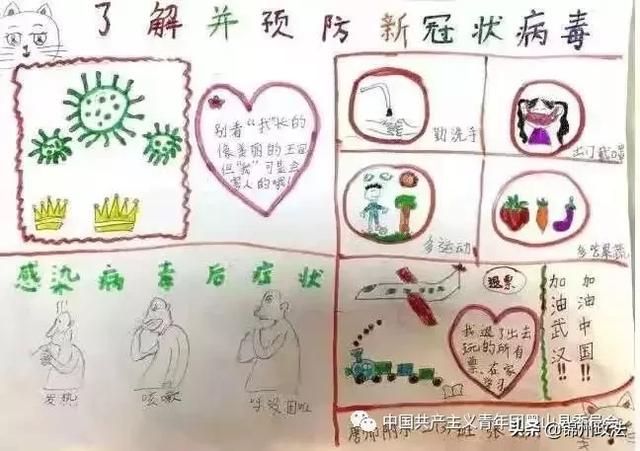 了解并预防新冠状病毒
别看“我”长的
像美丽的王冠
但“我”可是会
害人的哦!
勤洗手
出门戴口罩
多运动
多吃果蔬
感染病毒后症状
发热
咳嗽
呼吸困难
退票
我退了出去
玩的所有
票、在家
学习
加油武汉!!
加油中国!!
中国共产主义青年团蜀山县委员会
头条@锦州政法